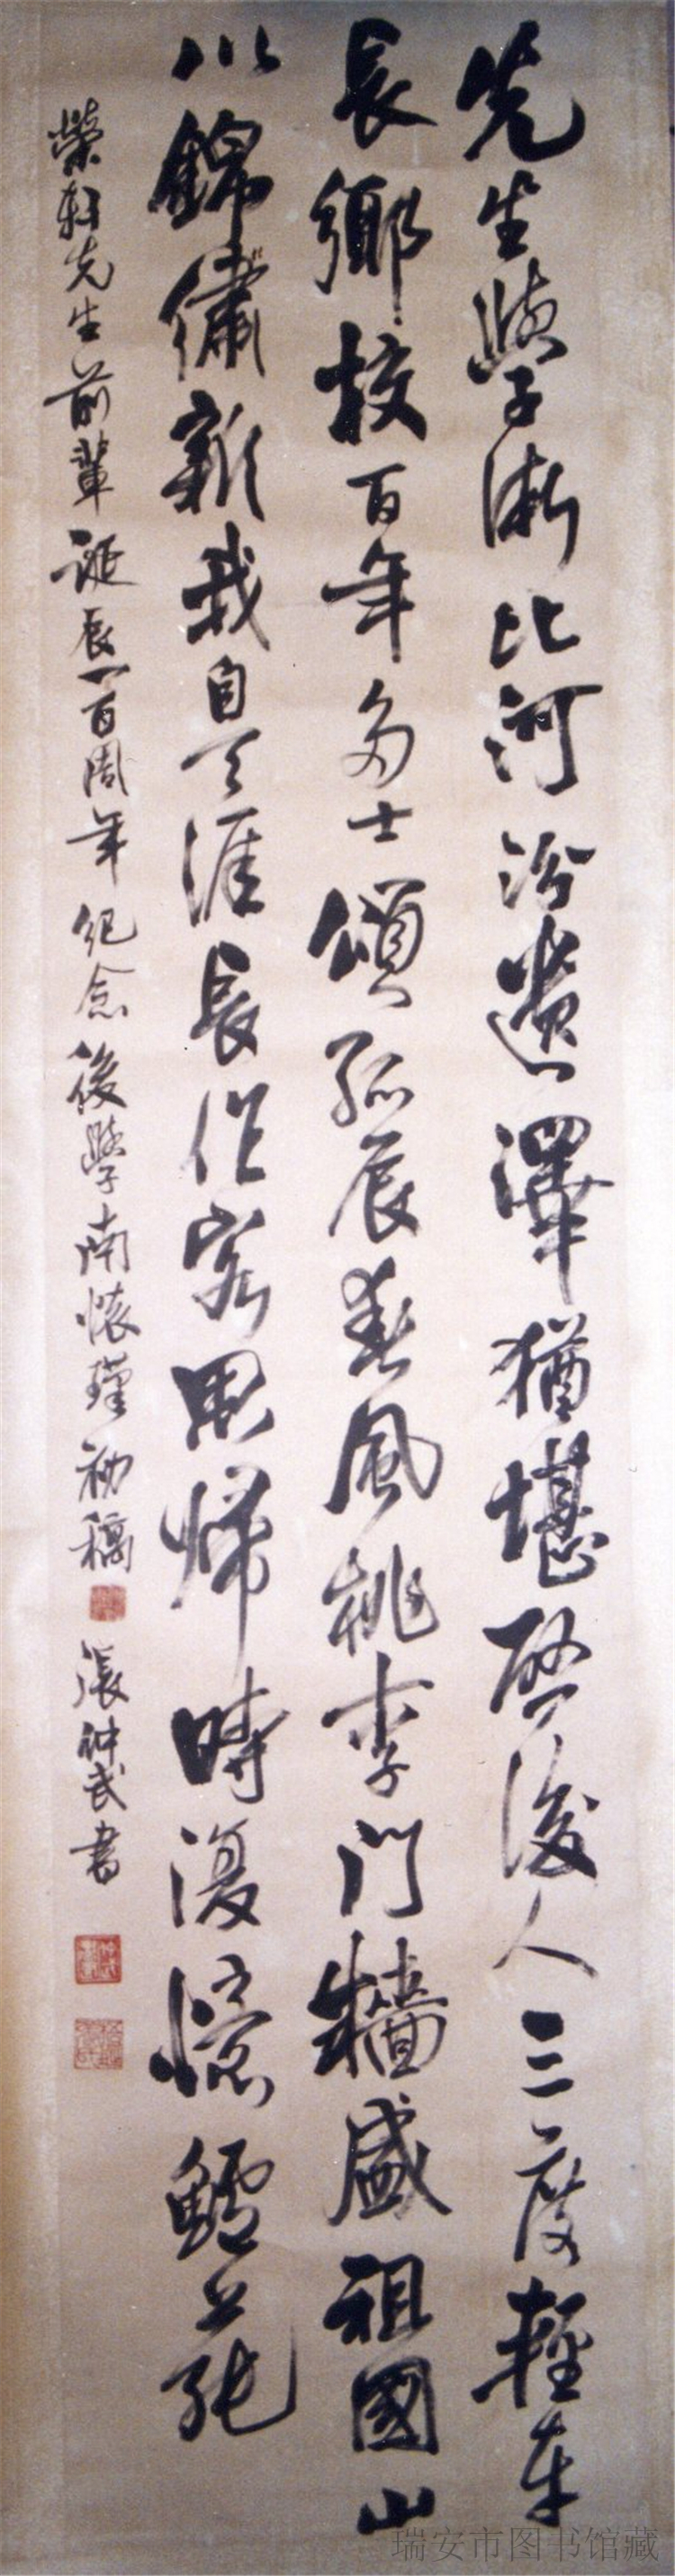 先生學術比河汾遺澤猶堪啓後人三度輕車
長鄉校百年多士頌孤辰春風桃李門牆盛祖國山
川錦繡新我自天涯長作客思歸時復憶鱸蒓
榮軒先生前輩誕辰一百周年紀念後學南懷瑾初稿
張仲武書
瑞安市图书馆藏